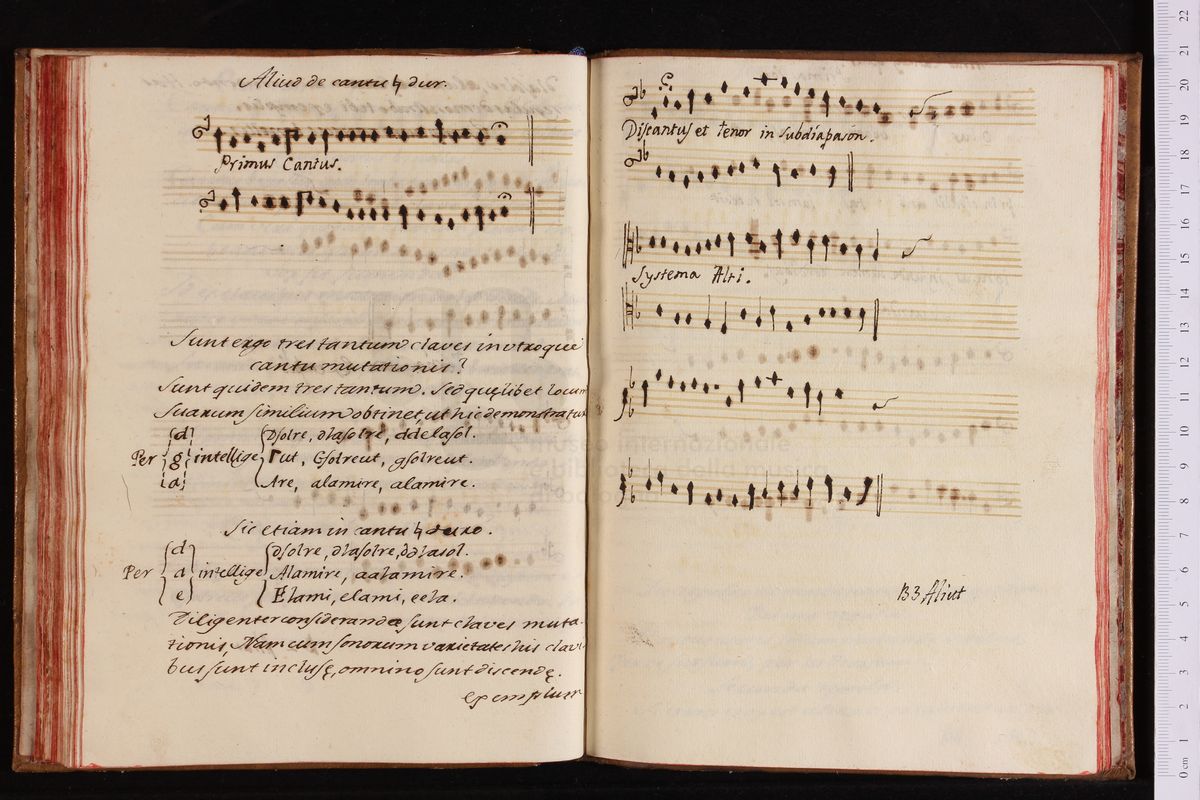 Aliud de cantu ♮ dur.
Primus Cantus.
Sunt ergo tres tantum claves in utroque
cantu mutationis?
Sunt quidem tres tantum. Sed quęlibet locum
suarum similium obtinet, ut hic demonstratur
Per { d g a } intellige { Dsolre, dlasolre, ddlasol.
Γut, Gsolreut, gsolreut.
Are, alamire, alamire.
Sic etiam in cantu ♮ duro.
Per { d a e } intellige { Dsolre, dlasolre, ddlasol.
Alamire, aalamire.
Elami, elami, eela.
Diligenter consideranda sunt claves muta-
tionis, Nam cum sonorum varietates his clavi-
bus sunt inclusę, omnino sunt discendę.
Exemplum
Discantus et tenor in subdiapason.
Systema Alti.
B3 Aliut
museo internazionale
e biblioteca della musica
di bologna
0 cm 1 2 3 4 5 6 7 8 9 10 11 12 13 14 15 16 17 18 19 20 21 22